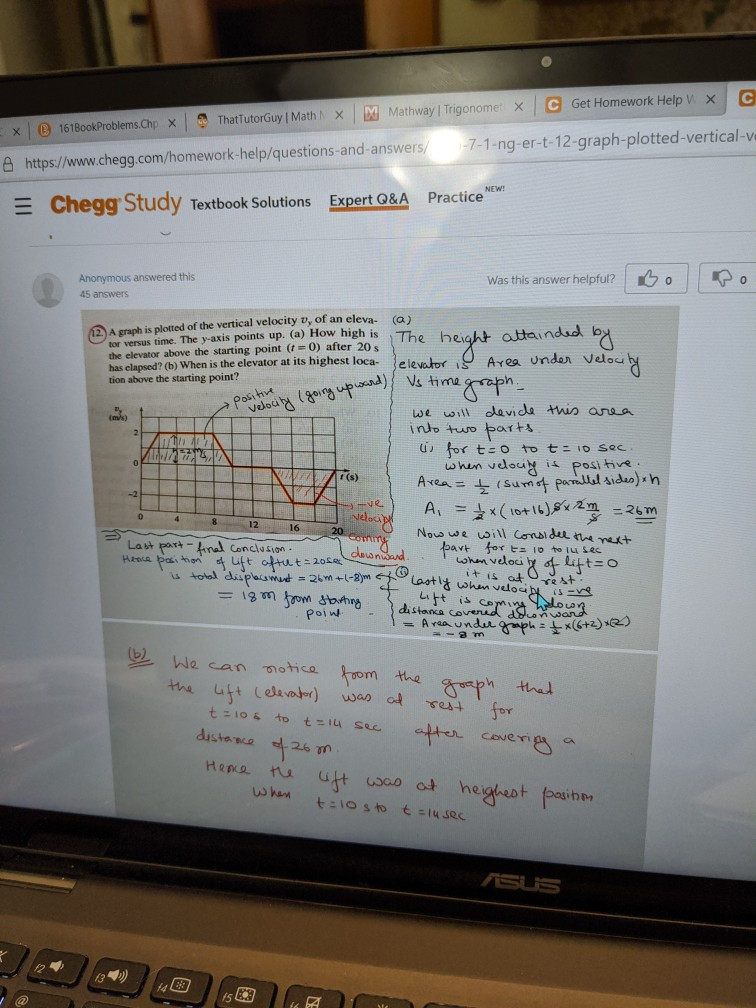 161BookProblems.Chp X
ThatTutorGuy | Math X
Mathway | Trigonome X
Get Homework Help X
https://www.chegg.com/homework-help/questions-and-answers/ -7-1-ng-er-t-12-graph-plotted-vertical-v
Chegg Study Textbook Solutions Expert Q&A Practice NEW!
Anonymous answered this
45 answers
Was this answer helpful? 0 0
12. A graph is plotted of the vertical velocity vy of an eleva-
tor versus time. The y-axis points up. (a) How high is
the elevator above the starting point (t = 0) after 20 s
has elapsed? (b) When is the elevator at its highest loca-
tion above the starting point?
positive
velocity (going upward)
vy
(m/s)
2
0
-2
h=2m/s
t (s)
0 4 8 12 16 20
-ve
velocity
coming
downward.
⇒ Last part - final conclusion.
Hence position of lift after t=20sec
is total displacement = 26m+(-8)m
= 18m from starting
point
(a)
The height attainded by
elevator is Area under velocity
Vs time graph_
we will devide this area
into two parts
(i) for t=0 to t=10 sec.
when velocity is positive.
Area = 1/2 (sum of parallel sides) × h
A1 = 1/2 × (10+16) s × 2m/s = 26m
Now we will consider the next
part for t= 10 to 14 sec
when velocity of lift=0
it is at rest.
(ii) Lastly when velocity is -ve
Lift is coming down
distance covered downward
= Area under graph = 1/2 × (6+2) × (2)
= -8 m
(b) We can notice from the graph that
the lift (elevator) was at rest for
t=10s to t=14 sec after covering a
distance of 26m.
Hence the lift was at heighest position
when t=10s to t=14sec
ASUS
f2
f3
f4
f5
@